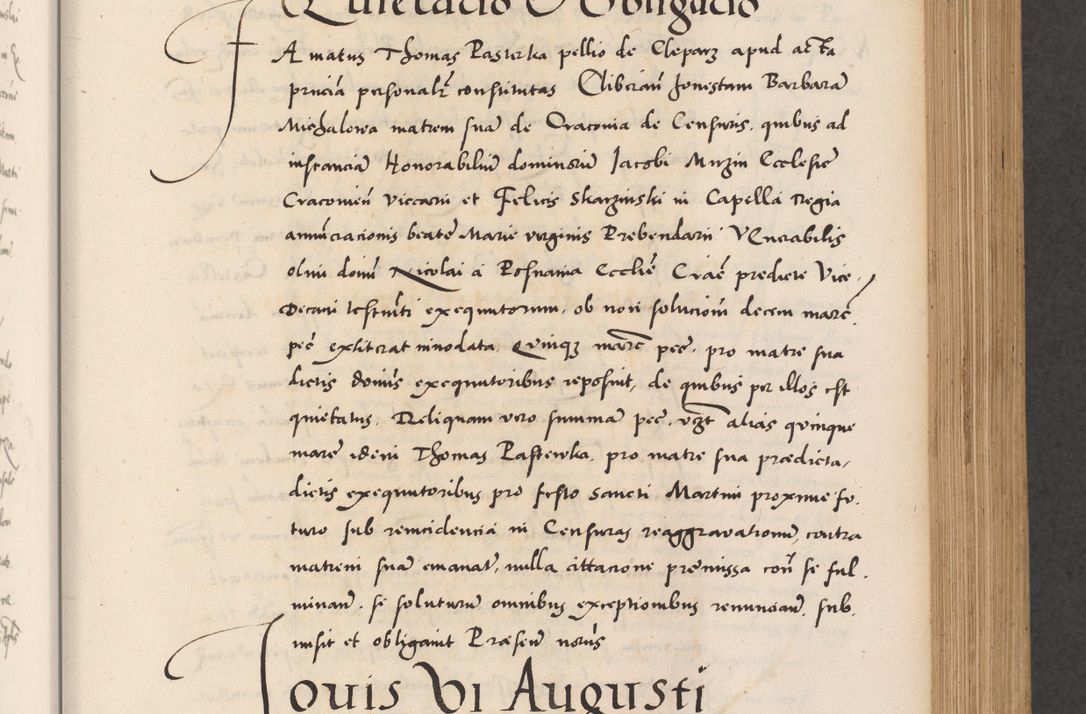 Quietacio Et Obligacio
Famatus Thomas Pasterka pellio de Cleparz apud acta
pñciã personalr̃ constitutus Cliberañ honestam Barbarã
Michalowa matrem suã de Cracovia de Censuris, quibus ad
instanciã Honorabiliũ dominorũ Jacobi Murzin Ecclesiẽ
Cracovieñ viccarii et Felicis Skarzinski in Capella Regia
anunciacionis beatẽ Marie virginis Prebendarii Venerabilis
olim domĩ Nicolai a Posnania Eccliẽ Craẽ predicte Vice,
Decani testam̃ti exequutorum, ob non solucionẽ decem marc̃.
pec̃ extiterat innodata, Quinq3 marc̃ pec̃. pro matre sua
dictis dominis exequutoribus reposuit, de quibus per illos est
quietatus. Reliquam vero summã pec̃. alias quinque
marc̃ idem Thomas Pastewka, pro matre sua prædicta,
dictis exequutoribus pro festo sancti Martini proxime fu.
turo sub reincidencia in Censuras reaggravationũ, contra
matrem suã emanat̃, nulla cittacione premissa coñ se ful.
minañ. se soluturũ omnibus exceptionibus renunciañ. sub.
misit et obligavit Præsen̄ notis
Jovis VI Augusti